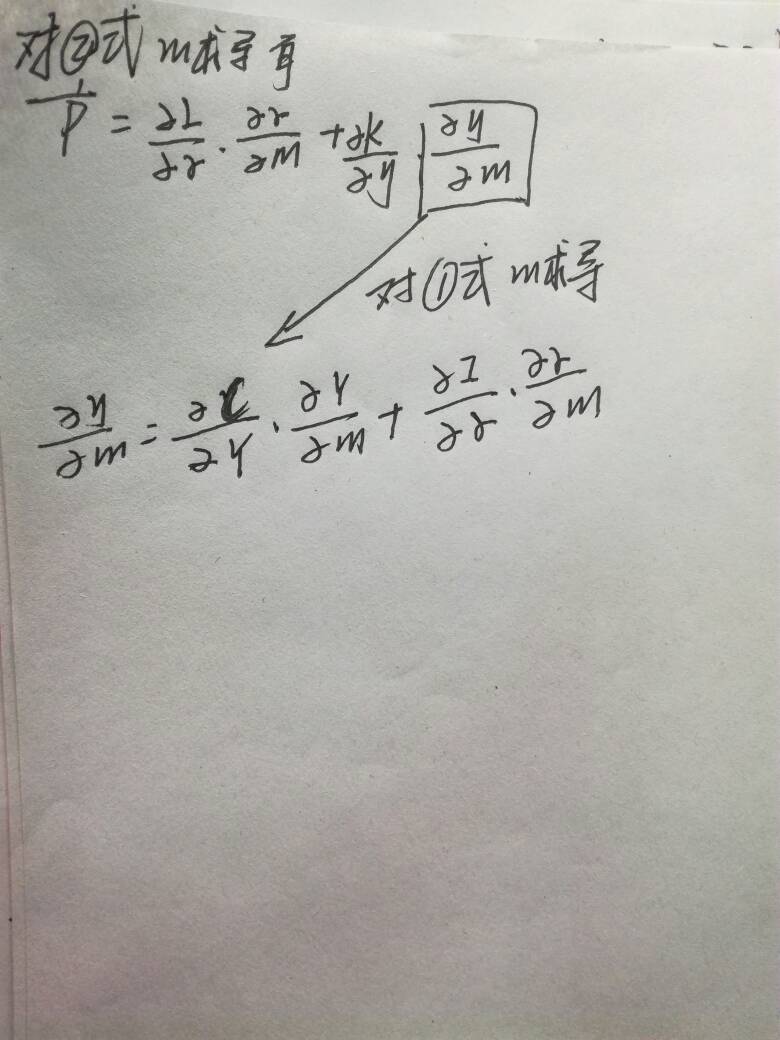 对②式 m求导有
1/P = ∂L/∂r · ∂r/∂M + ∂K/∂y · ∂y/∂m
对①式 m求导
∂y/∂m = ∂C/∂Y · ∂Y/∂m + ∂I/∂r · ∂r/∂M